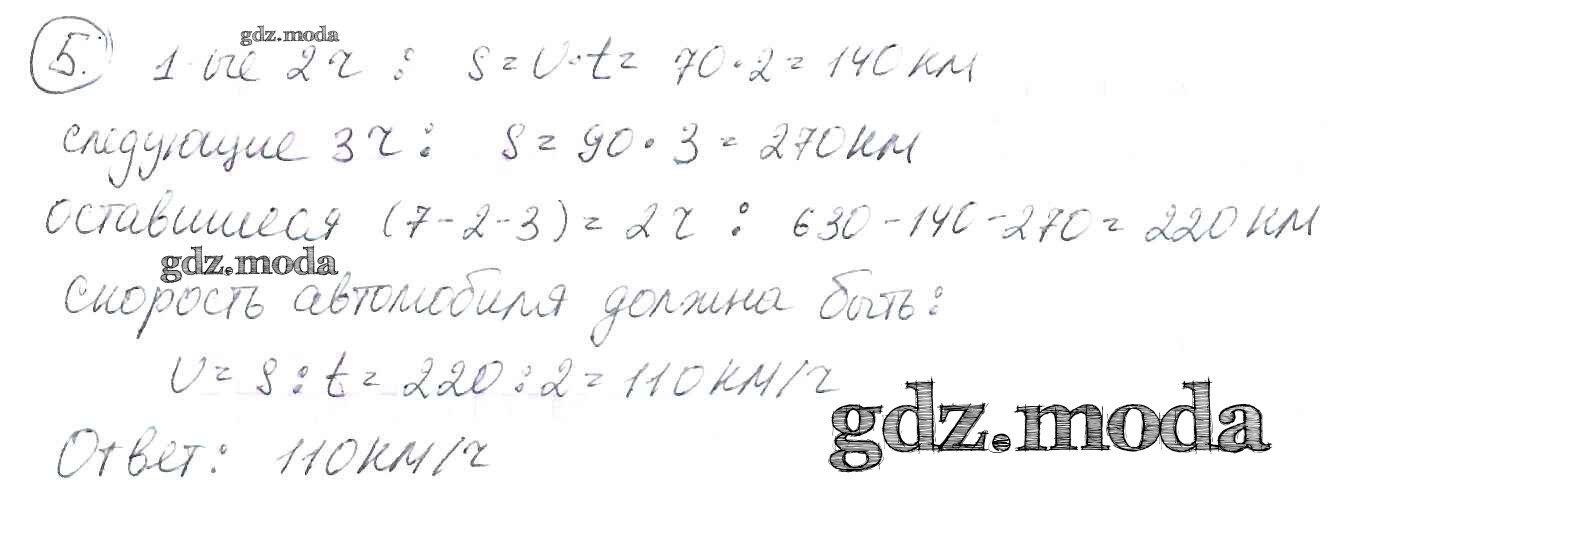 gdz.moda
5. 1-ые 2ч : S = U·t = 70·2 = 140км
следующие 3ч : S = 90·3 = 270км
оставшиеся (7-2-3) = 2ч : 630-140-270 = 220км
gdz.moda
скорость автомобиля должна быть:
U = S : t = 220 : 2 = 110км/ч
gdz.moda
Ответ: 110км/ч